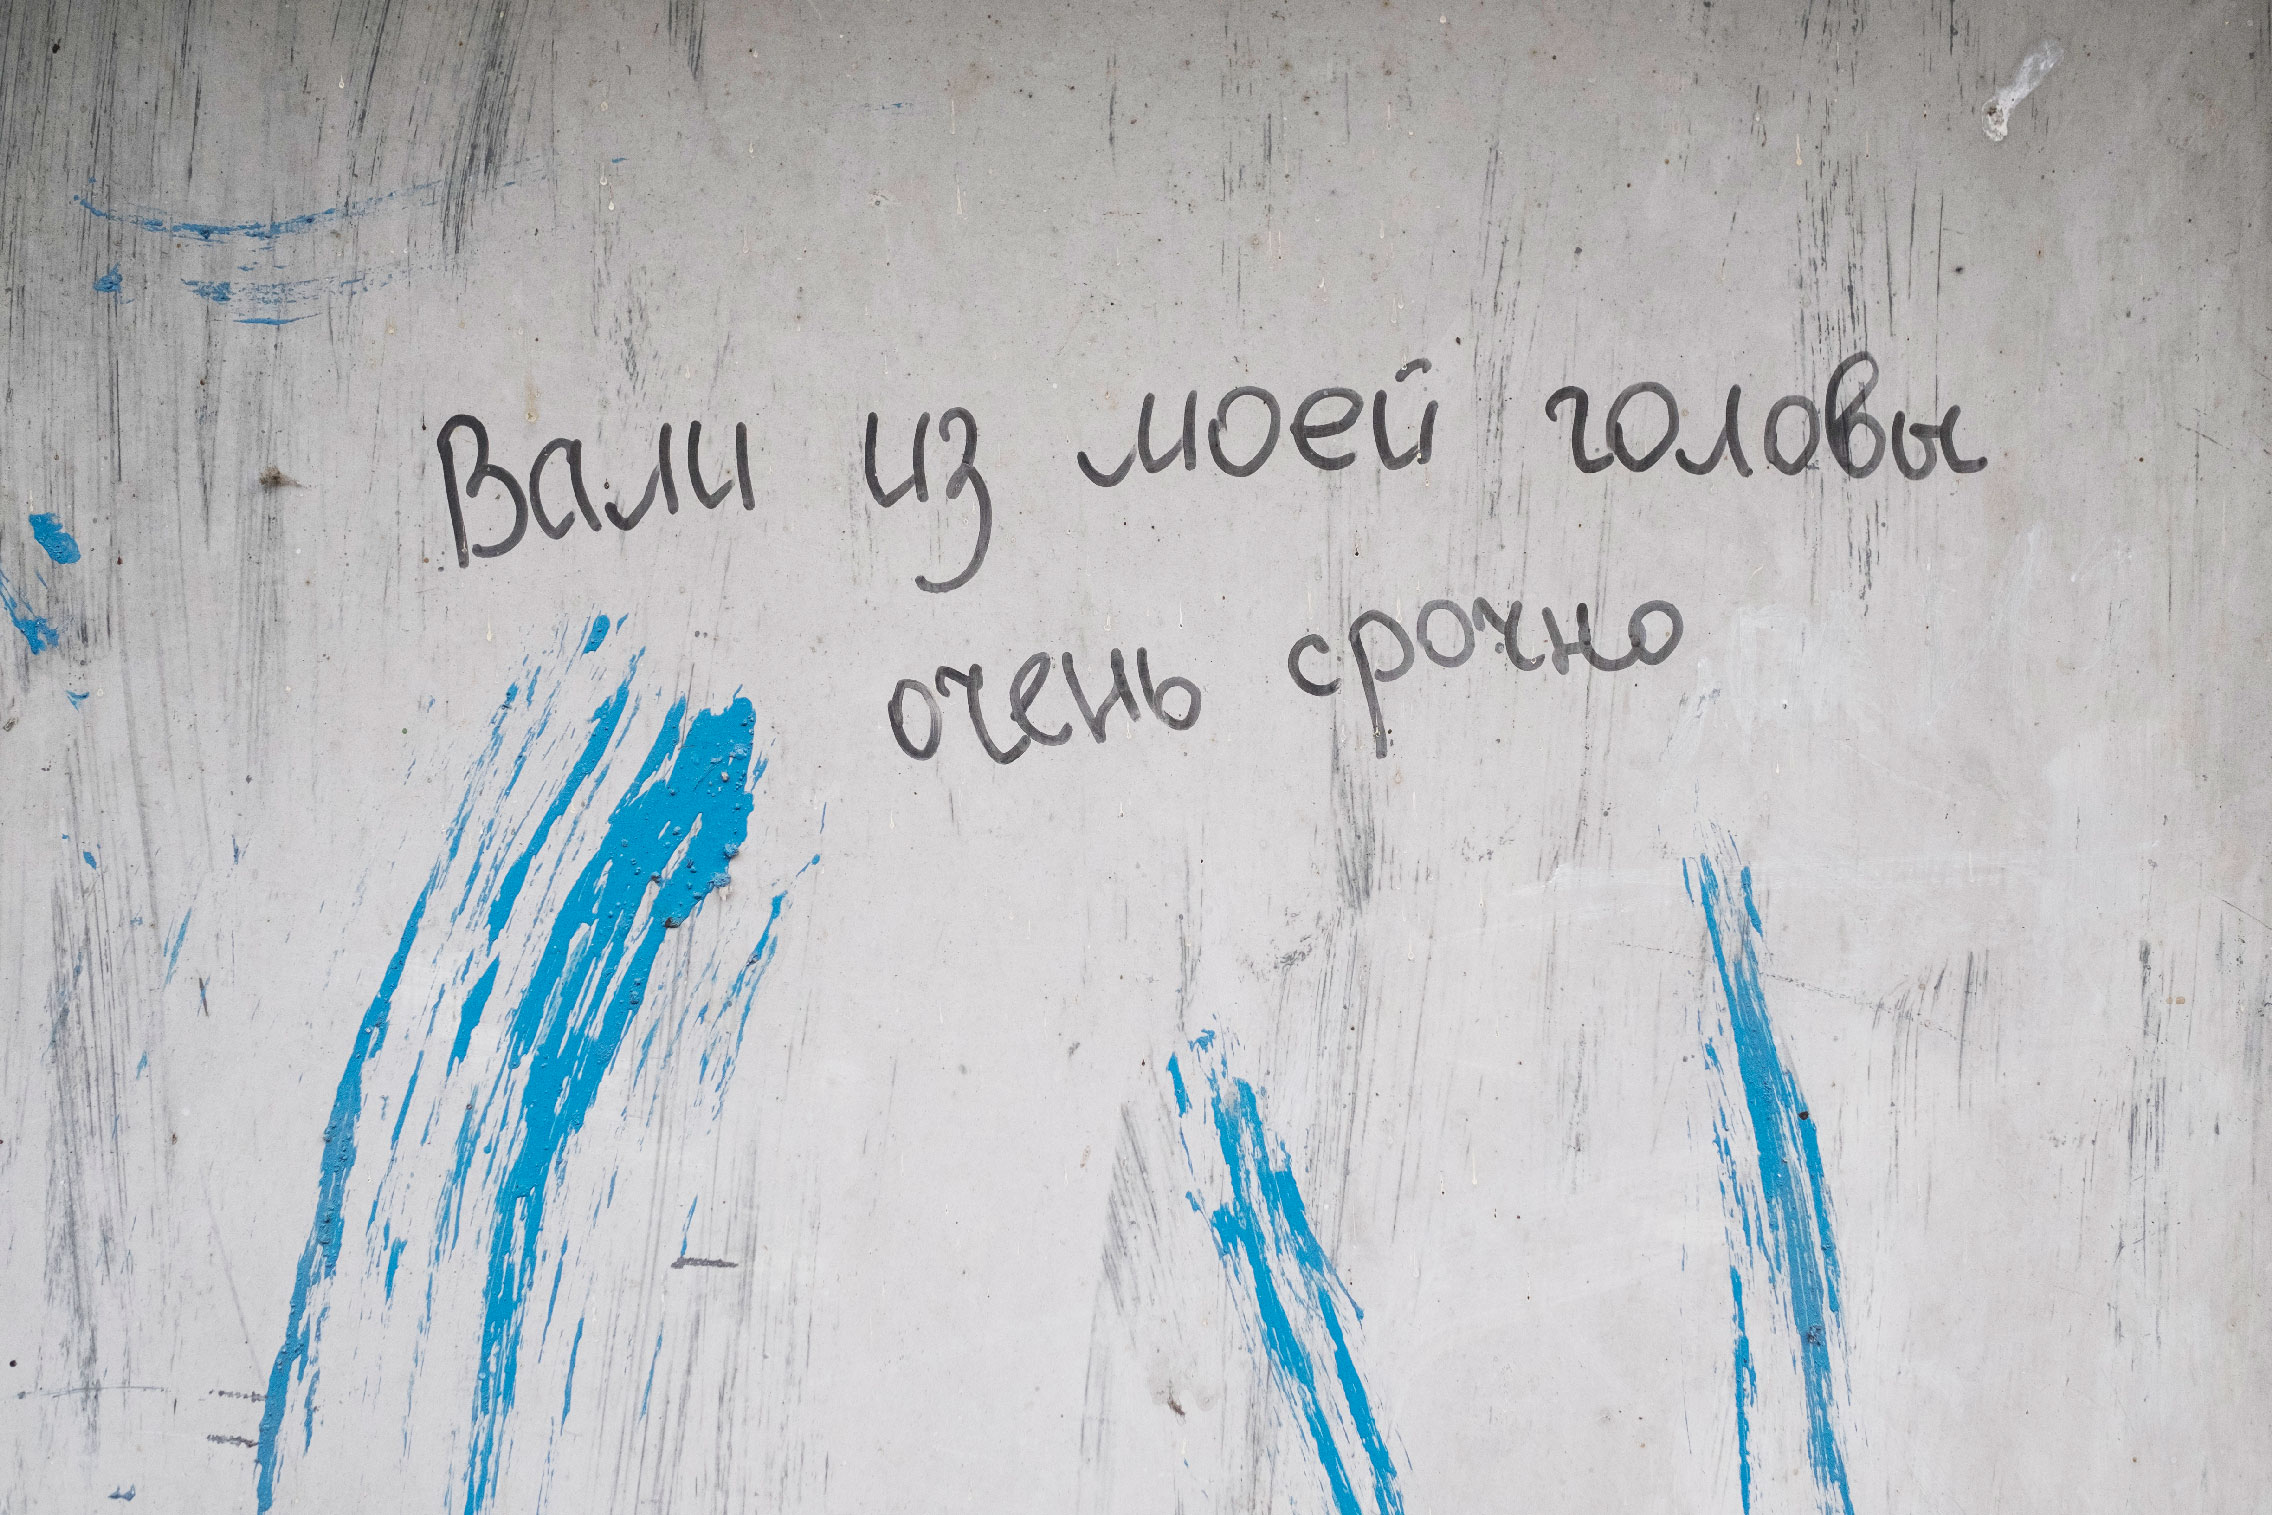 Вали из моей головы
очень срочно